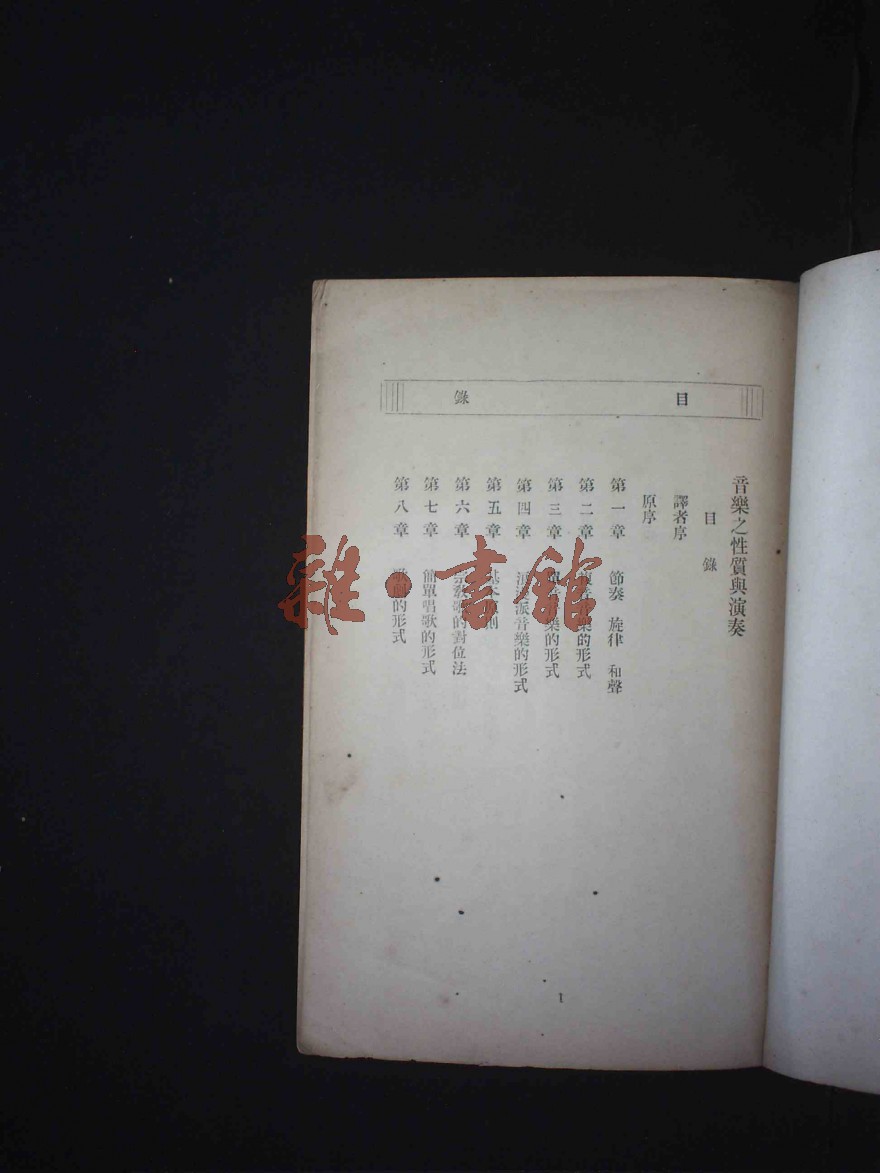 目錄
音樂之性質與演奏
目錄
譯者序
原序
第一章 節奏 旋律 和聲
第二章 音樂的形式
第三章 單音音樂的形式
第四章 派音樂的形式
第五章 基本
第六章 的對位法
第七章 簡單唱歌的形式
第八章 歌劇的形式
1
雜·書館